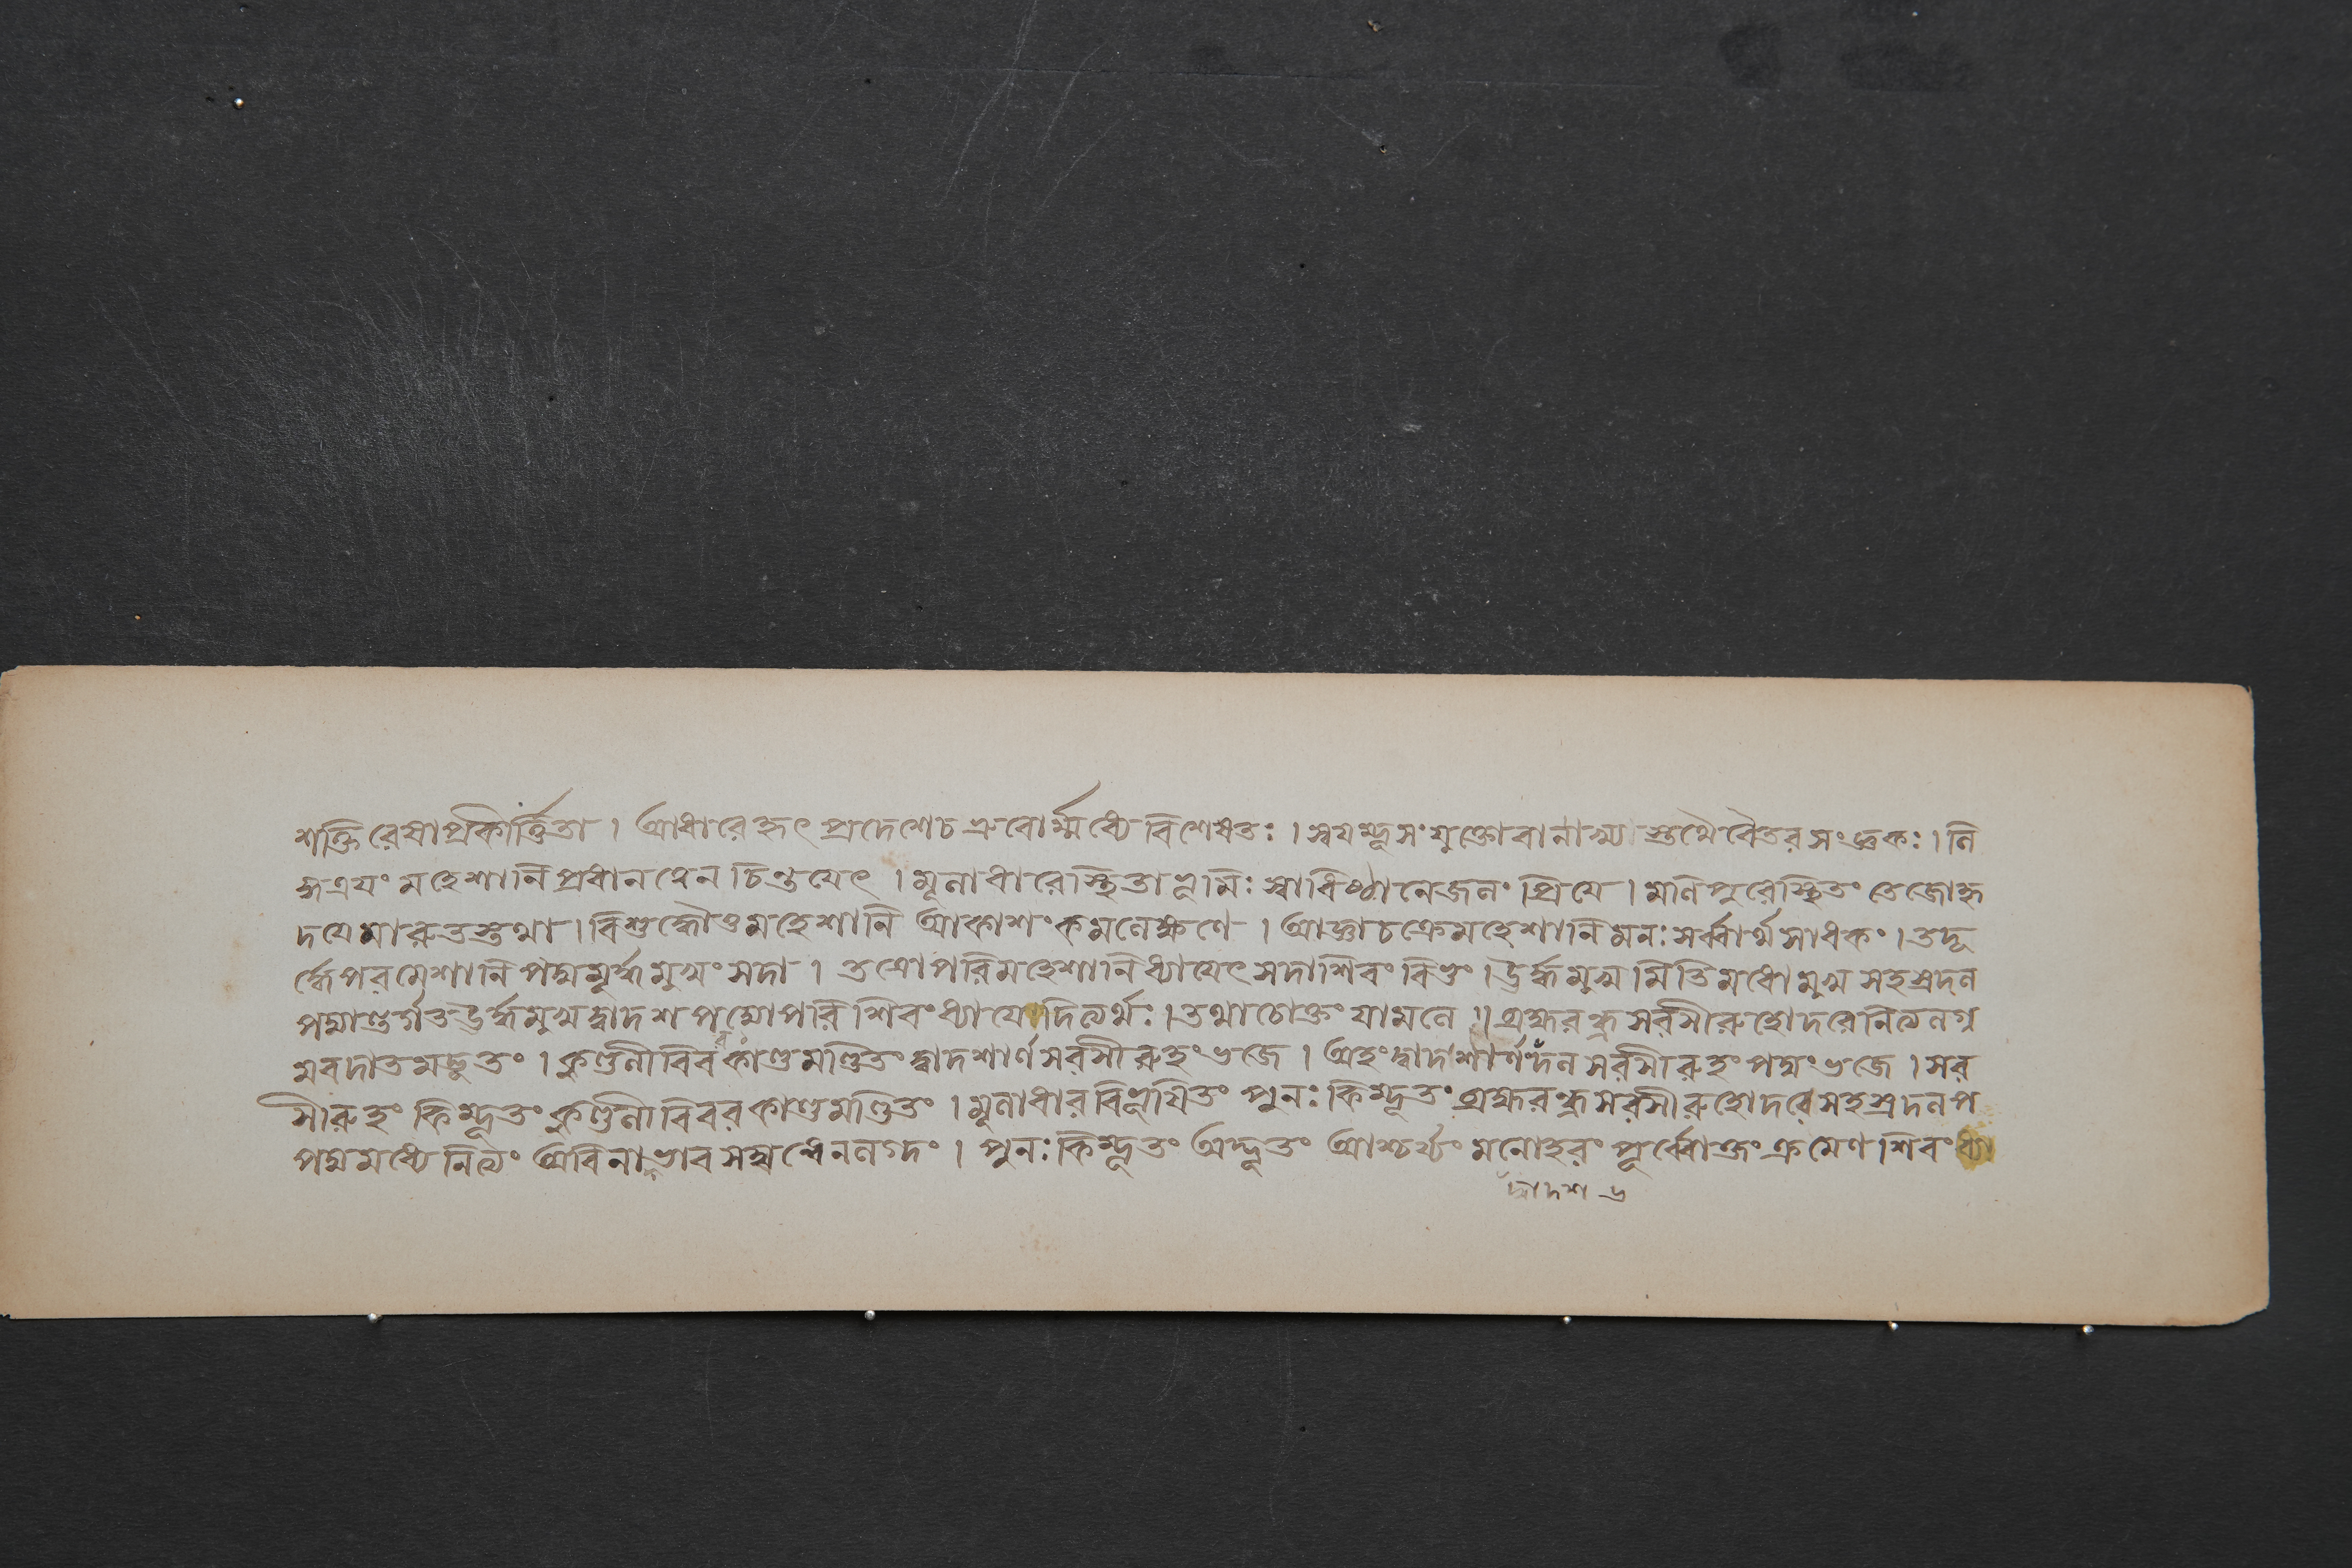 শক্তিরেষাপ্রকীর্ত্তিতা । আধারেহৃৎ প্রদেশেচ ভ্রুবোর্ম্মধ্যে বিশেষতঃ । স্বযম্ভূসংযুক্তোবানাক্ষ্য স্তথৈবেতরসংজ্ঞকঃ । লি
ঙ্গত্রযং মহেশানি প্রধানত্বেন চিন্তযেৎ । মূলাধারেস্থিতাভূমিঃ স্বাধিষ্ঠানেজলং প্রিযে । মণিপুরেস্থিতং তেজোহৃ
দযেমারুতস্তথা । বিশুদ্ধৌতুমহেশানি আকাশং কমলেক্ষণে । আজ্ঞাচক্রেমহেশানি মনঃ সর্ব্বার্থসাধকং । তদূ
র্দ্ধেপরমেশানি পদ্মমূর্দ্ধমুখং সদা । তত্রোপরিমহেশানি ধ্যাযেৎ সদাশিবং বিভুং । ঊর্দ্ধমুখমিতিমধোমুখ সহস্রদল
পদ্মান্তর্গতঊর্দ্ধমুখদ্বাদশ পদ্মোপরি শিবং ধ্যাযেদিত্যর্থঃ । তথাচোক্তং যামলে । ব্রহ্মরন্ধ্রসরসীরুহোদরেনিত্যলগ্ন
মবদাতমদ্ভুতং । কুণ্ডলীবিবরকাণ্ডমণ্ডিতং দ্বাদশার্ণসরসীরুহংভজে । অহংদ্বাদশার্ণংদল সরসীরুহং পদ্মংভজে । সর
সীরুহং কিম্ভূতং কুণ্ডলীবিবরকাণ্ডমণ্ডিতং । মূলাধারবিভূষিতং পুনঃ কিম্ভূতং ব্রহ্মরন্ধ্রসরসীরুহোদরেসহস্রদলপ
পদ্মমধ্যে নিত্যং অবিনাভাবসম্বন্ধেনলগ্নং । পুনঃ কিম্ভূতং অদ্ভূতং আশ্চর্য্যং মনোহরং পূর্ব্বোক্তং ক্রমেণ শিবংধ্যা
দ্বাদশ ৬